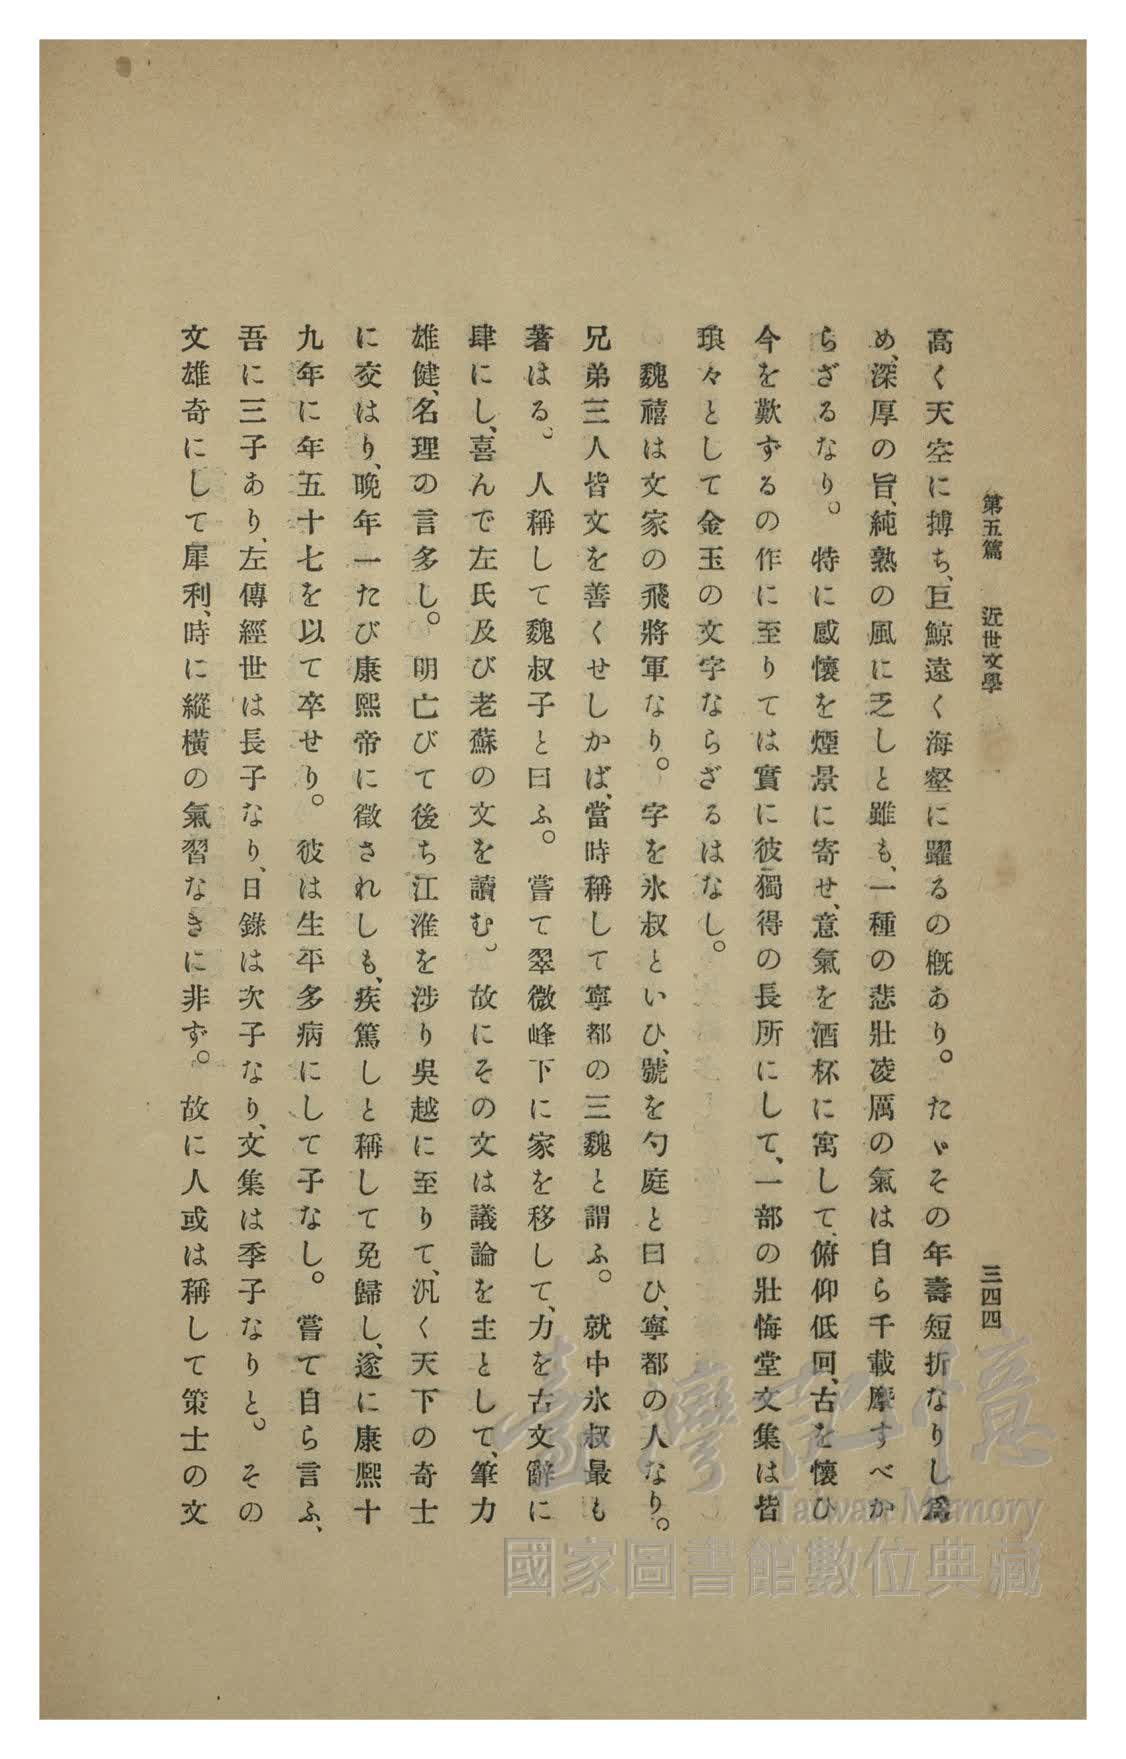 第五篇　近世文學　三四四
高く天空に搏ち、巨鯨遠く海壑に躍るの概あり。たゞその年壽短折なりし爲
め、深厚の旨、純熟の風に乏しと雖も、一種の悲壯凌厲の氣は自ら千載摩すべか
らざるなり。特に感懷を煙景に寄せ、意氣を酒杯に寓して、俯仰低回、古を懷ひ
今を歎ずるの作に至りては實に彼獨得の長所にして、一部の壯悔堂文集は皆
琅々として金玉の文字ならざるはなし。
魏禧は文家の飛將軍なり。字を氷叔といひ、號を勺庭と曰ひ、寧都の人なり。
兄弟三人皆文を善くせしかば、當時稱して寧都の三魏と謂ふ。就中氷叔最も
著はる。人稱して魏叔子と曰ふ。嘗て翠微峰下に家を移して、力を古文辭に
肆にし、喜んで左氏及び老蘇の文を讀む。故にその文は議論を主として、筆力
雄健、名理の言多し。明亡びて後ち江淮を涉り吳越に至りて、汎く天下の奇士
に交はり、晩年一たび康熙帝に徵されしも、疾篤しと稱して免歸し、遂に康熙十
九年に年五十七を以て卒せり。彼は生平多病にして子なし。嘗て自ら言ふ、
吾に三子あり、左傳經世は長子なり、日錄は次子なり、文集は季子なりと。その
文雄奇にして犀利、時に縱橫の氣習なきに非ず。故に人或は稱して策士の文
臺灣記憶
Taiwan Memory
國家圖書館數位典藏